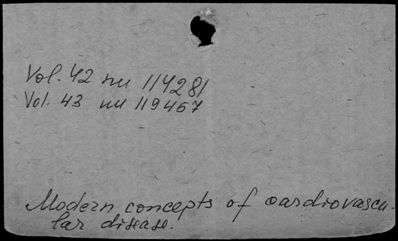 Vol. 42 nu 114281
Vol. 43 nu 119457
Modern concepts of cardiovascu-
lar disease.